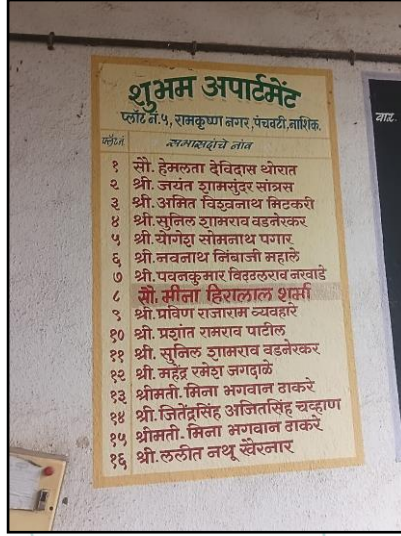 शुभम अपार्टमेंट
प्लॉट नं.५, रामकृष्ण नगर, पंचवटी, नाशिक.
फ्लॅट नं. सभासदांचे नांव
१ सौ. हेमलता देविदास थोरात
२ श्री. जयंत शामसुंदर सांत्रस
३ श्री. अमित विश्वनाथ मिटकरी
४ श्री. सुनिल शामराव वडनेरकर
५ श्री. योगेश सोमनाथ पगार
६ श्री. नवनाथ निंबाजी महाले
७ श्री. पवनकुमार विठ्ठलराव नरवाडे
८ सौ. मीना हिरालाल शर्मा
९ श्री. प्रविण राजाराम व्यवहारे
१० श्री. प्रशांत रामराव पाटील
११ श्री. सुनिल शामराव वडनेरकर
१२ श्री. महेंद्र रमेश जगदाळे
१३ श्रीमती. मिना भगवान ठाकरे
१४ श्री. जितेंद्रसिंह अजितसिंह चव्हाण
१५ श्रीमती. मिना भगवान ठाकरे
१६ श्री. ललीत नथू खैरनार
वार.